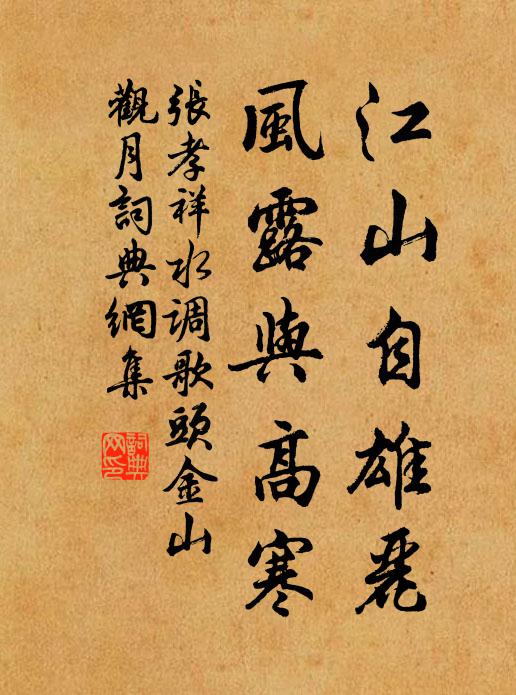 江山自雄麗
風露與高寒
張孝祥水调歌頭金山
觀月詞典網集
詞典网印